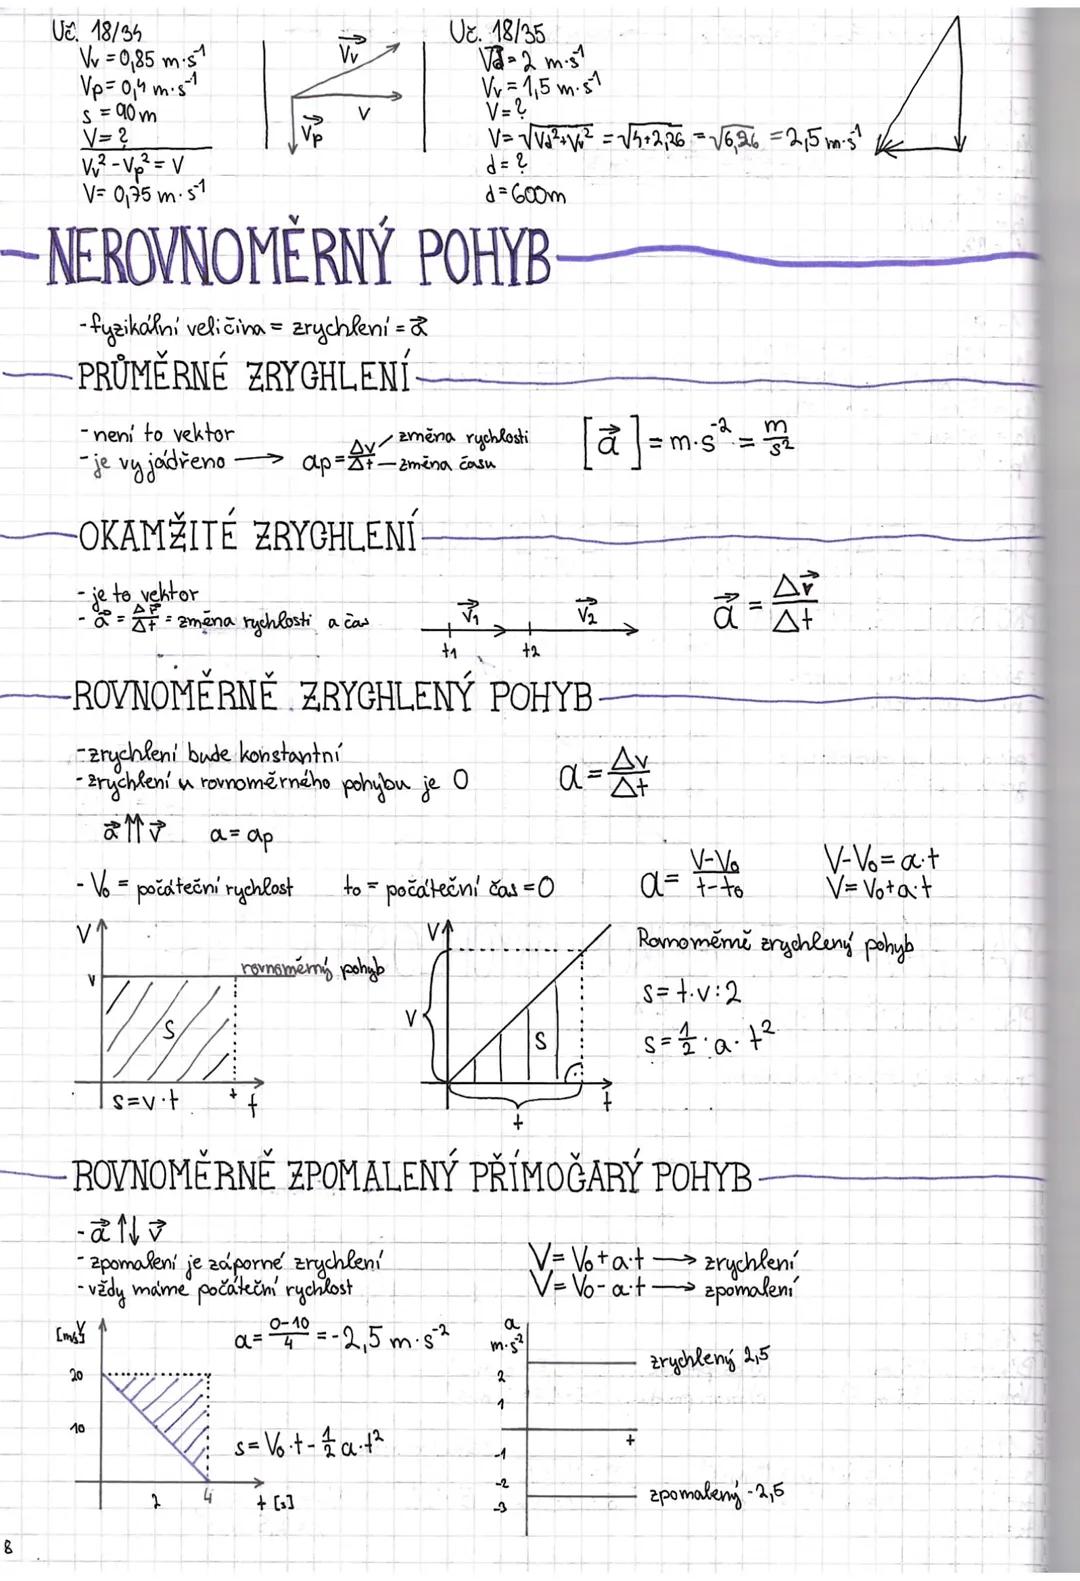 Uč. 18/34
Vv = 0,85 m·s⁻¹
Vp = 0,4 m·s⁻¹
s = 90 m
V = ?
Vv² - Vp² = V
V = 0,75 m·s⁻¹
Vv
V
Vp
Uč. 18/35
Vd = 2 m·s⁻¹
Vv = 1,5 m·s⁻¹
V = ?
V = √Vd²+Vv² = √4+2,26 = √6,26 = 2,5 m·s⁻¹
d = ?
d = 600m
NEROVNOMĚRNÝ POHYB
- fyzikální veličina = zrychlení = a⃗
PRŮMĚRNÉ ZRYCHLENÍ
- není to vektor
- je vyjádřeno → ap = Δv/Δt
změna rychlosti
změna času
[a⃗] = m·s⁻² = m/s²
OKAMŽITÉ ZRYCHLENÍ
- je to vektor
- a⃗ = Δv⃗/Δt = změna rychlosti a čas
V⃗₁ V⃗₂
t1 t2
a⃗ = Δv⃗/Δt
ROVNOMĚRNĚ ZRYCHLENÝ POHYB
- zrychlení bude konstantní
- zrychlení u rovnoměrného pohybu je 0
a = Δv/Δt
a⃗ ↑↑ v⃗ a = ap
- V₀ = počáteční rychlost t₀ = počáteční čas = 0
a = V-V₀/t-t₀
V-V₀ = a·t
V = V₀+a·t
V
v
rovnoměrný pohyb
S
S=v·t
t
t
V
V
S
t
t
Rovnoměrně zrychlený pohyb
s = t·v:2
s = ½·a·t²
ROVNOMĚRNĚ ZPOMALENÝ PŘÍMOČARÝ POHYB
- a⃗ ↑↓ v⃗
- zpomalení je záporné zrychlení
- vždy máme počáteční rychlost
V = V₀+a·t → zrychlení
V = V₀-a·t → zpomalení
a = 0-10/4 = -2,5 m·s⁻²
20
10
2 4 t [s]
s = V₀·t - ½ a·t²
a
m·s²
2
1
-1
-2
-3
t
zrychlený 2,5
zpomalený -2,5
8